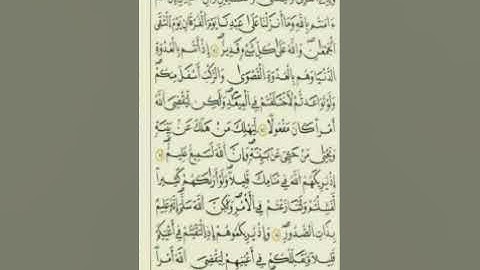 ءَامَنتُم بِاللَّهِ وَمَا أَنزَلْنَا عَلَىٰ عَبْدِنَا يَوْمَ الْفُرْقَانِ يَوْمَ الْتَقَى
الْجَمْعَانِ وَاللَّهُ عَلَىٰ كُلِّ شَيْءٍ قَدِيرٌ إِذْ أَنتُم بِالْعُدْوَةِ
الدُّنْيَا وَهُم بِالْعُدْوَةِ الْقُصْوَىٰ وَالرَّكْبُ أَسْفَلَ مِنكُمْ
وَلَوْ تَوَاعَدتُّمْ لَاخْتَلَفْتُمْ فِي الْمِيعَادِ وَلَٰكِن لِّيَقْضِيَ اللَّهُ
أَمْرًا كَانَ مَفْعُولًا لِّيَهْلِكَ مَنْ هَلَكَ عَن بَيِّنَةٍ
وَيَحْيَىٰ مَنْ حَيَّ عَن بَيِّنَةٍ وَإِنَّ اللَّهَ لَسَمِيعٌ عَلِيمٌ
إِذْ يُرِيكَهُمُ اللَّهُ فِي مَنَامِكَ قَلِيلًا وَلَوْ أَرَاكَهُمْ كَثِيرًا
لَّفَشِلْتُمْ وَلَتَنَازَعْتُمْ فِي الْأَمْرِ وَلَٰكِنَّ اللَّهَ سَلَّمَ إِنَّهُ عَلِيمٌ
بِذَاتِ الصُّدُورِ وَإِذْ يُرِيكُمُوهُمْ إِذِ الْتَقَيْتُمْ فِي أَعْيُنِكُمْ
قَلِيلًا وَيُقَلِّلُكُمْ فِي أَعْيُنِهِمْ لِيَقْضِيَ اللَّهُ أَمْرًا